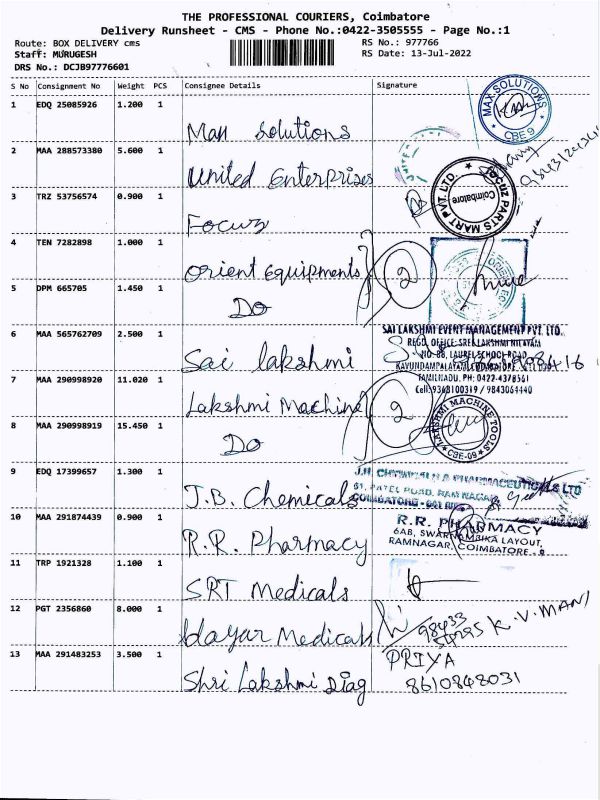 THE PROFESSIONAL COURIERS, Coimbatore
Delivery Runsheet - CMS - Phone No.:0422-3505555 - Page No.:1
Route: BOX DELIVERY cms
RS No.: 977766
Staff: MURUGESH
RS Date: 13-Jul-2022
DRS No.: DCJB97776601
S No Consignment No Weight PCS Consignee Details Signature
1 EDQ 25085926 1.200 1 Max Solutions
MAX.SOLUTIONS
CBE 9
2 MAA 288573380 5.600 1 United Enterprises
3 TRZ 53756574 0.900 1 Focuz
FOCUZ PARTS MART PVT. LTD.
Coimbatore
4 TEN 7282898 1.000 1 Orient Equipments
2
5 DPM 665705 1.450 1 Do
6 MAA 565762709 2.500 1 Sai lakshmi
SAI LAKSHMI EVENT MANAGEMENT PVT. LTD.
REGD. OFFICE: SREE LAKSHMI NILAYAM
NO-88, LAUREL SCHOOL ROAD
KAVUNDAMPALAYAM, COIMBATORE
TAMILNADU. PH: 0422-4378561
Cell: 9363100319 / 9843064440
7 MAA 290998920 11.020 1 Lakshmi Machine
2
LAKSHMI MACHINE TOOLS
CBE-09
8 MAA 290998919 15.450 1 Do
9 EDQ 17399657 1.300 1 J.B. Chemicals
PHARMACEUTICALS LTD
61, PATEL ROAD, RAM NAGAR
COIMBATORE
10 MAA 291874439 0.900 1 R.R. Pharmacy
R.R. PHARMACY
6AB, SWARNAMBIKA LAYOUT,
RAMNAGAR, COIMBATORE - 9
11 TRP 1921328 1.100 1 SRT Medicals
12 PGT 2356860 8.000 1 Idayar Medicals
98433
54295 K.V.MANI
13 MAA 291483253 3.500 1 Shri Lakshmi Diag
PRIYA
8610848031